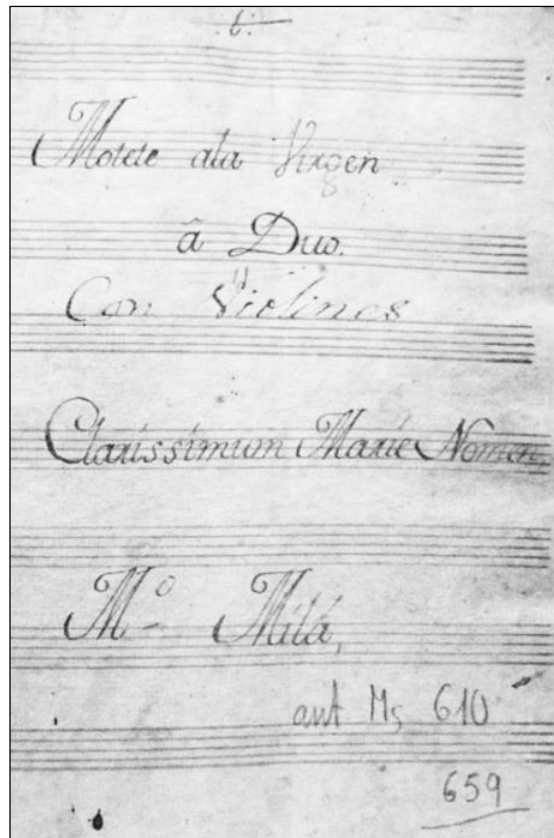 Motete ala Virgen
â Duo.
Con Violines
Clarissimum Marie Nomen,
Mº Milá,
ant Ms 610
659